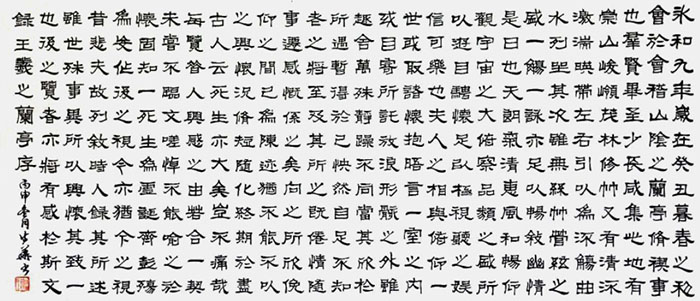 永和九年歲在癸丑暮春之初
會於會稽山陰之蘭亭脩禊事
也羣賢畢至少長咸集此地有
崇山峻嶺茂林脩竹又有清流
激湍映帶左右引以為流觴曲
水列坐其次雖無絲竹管弦之
盛一觴一詠亦足以暢敘幽情
是日也天朗氣清惠風和暢仰
觀宇宙之大俯察品類之盛所
以遊目騁懷足以極視聽之娛
信可樂也夫人之相與俯仰一
世或取諸懷抱晤言一室之內
或因寄所託放浪形骸之外雖
趣舍萬殊靜躁不同當其欣於
所遇暫得於己怏然自足不知
老之將至及其所之既倦情隨
事遷感慨係之矣向之所欣俛
仰之間已為陳迹猶不能不以
之興懷況脩短隨化終期於盡
古人云死生亦大矣豈不痛哉
每覽昔人興感之由若合一契
未嘗不臨文嗟悼不能喻之於
懷固知一死生為虛誕齊彭殤
為妄作後之視今亦猶今之視
昔悲夫故列敘時人錄其所述
雖世殊事異所以興懷其致一
也後之覽者亦將有感於斯文
錄王羲之蘭亭序 丙申